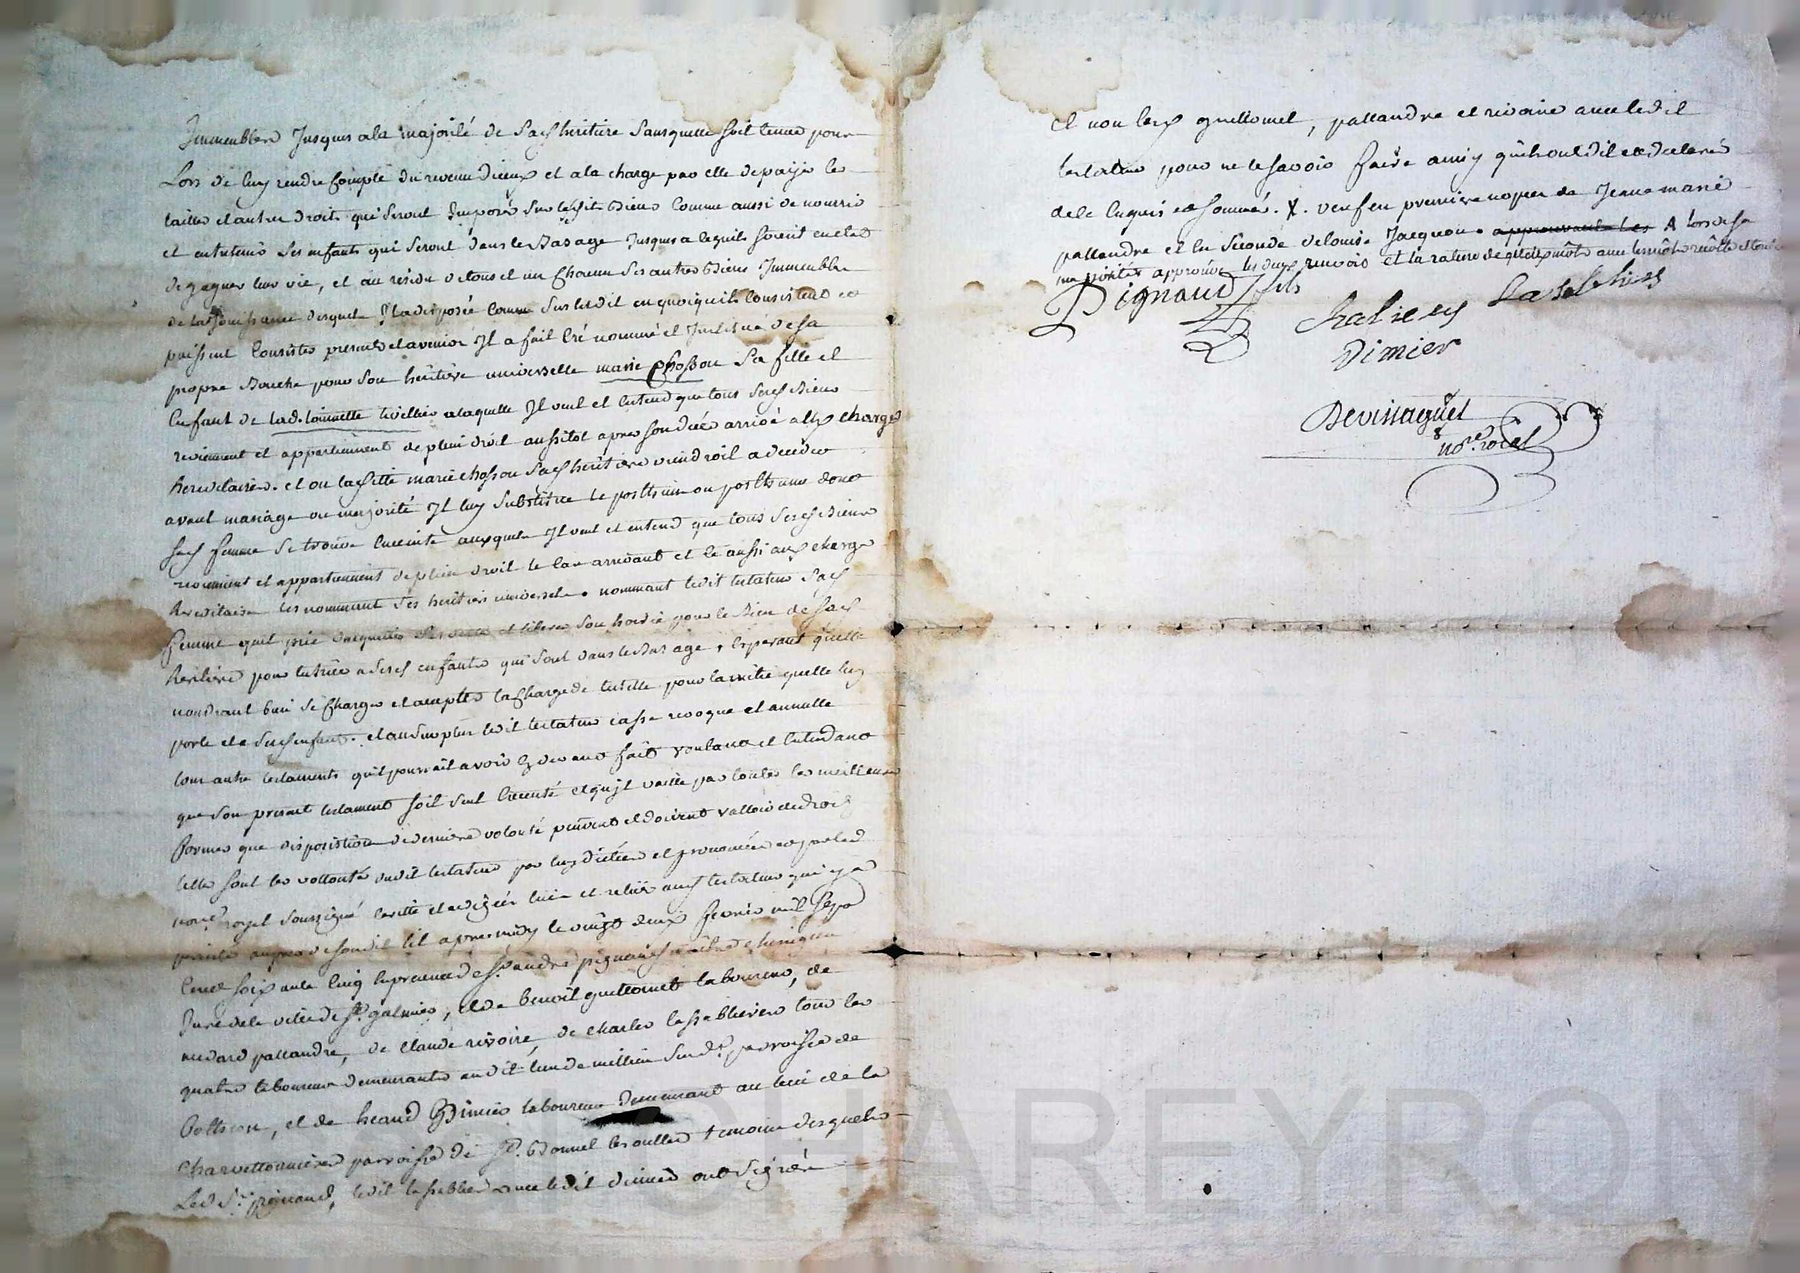 Immeubles Jusques ala majorité de Sad. heritiere Sansquelle soit tenue pour
Lors de luy rendre Compte du revenu Diceux et ala charge par elle depayer les
tailles et autres droits qui seront Imposés Sur lesdits Biens Comme aussi de nourrir
et entretenir Ses enfants qui Seront dans le Bas age Jusques a lequils soient en etat
de gagner leur vie, et au residu de tous et un Chacun Ses autres Biens Immeubles
de la Jouissance desquels Il a disposée Comme Sus est dit en quoiquils Consistent et
puissent Consister presents et avenir Il a fait Créé nommé et Institué de sa
propre Bouche pour Son heritiere universelle marie Chosson Sa fille et
Enfant de lad. toinette tivellier alaquelle Il veut et Entend que tous Sesd. Biens
reviennent et appartiennent de plein droit aussitot apres son decés arrivé aux charges
hereditaires. et ou lad. fille marie chosson Sad. heritiere viendroit a deceder
avant mariage ou majorité Il luy Substitue le posthume ou posthumes dont
Sad. femme Se trouve Enceinte auxquels Il veut et entend que tous Sesd. Biens
reviennent et appartiennent de plein droit le Cas arrivant et ce aussi aux charges
hereditaires les nommant Ses heritiers universels. nommant ledit testateur Sad.
femme pour le Bien de Sad.
heritiere pour tutrice a Sesd. enfants qui sont dans le Bas age, Esperant quelle
voudra bien Se Charger et accepter la Charge de tutelle pour lamitié quelle luy
porte et a Sesd. enfants. et au surplus ledit testateur casse revoque et annulle
tous autres testaments quil pourroit avoir cy devant faits voulant et Entendant
que Son present testament soit seul Executé et quil vaille par toutes les meilleures
formes que disposition de derniere volonté peuvent et doivent valloir de droit
telles sont les vollontés dudit testateur par luy dictées et prononcées et par led.
nore. royal soussigné Ecrittes et redigées lues et relües aud. testateur qui
aupres de sondit lit apres midy le vingt deux fevrier mil sept
Cent soixante Cinq En presence de sr. andré pignaud maitre chirurgien
Juré de la ville de St. galmier, et de benoit guillomet laboureur, de
medard pallandre, de Claude rivoire, de charles lasablieres tous les
quatre laboureurs demeurants audit lieu de millieu Susdte. parroisse de
, et de heand Dimier laboureur demeurant au lieu de la
Charvettonniere parroisse de St. Bonnet les oulles temoins desquels
Led. Sr. pignaud, ledit lasablieres avec ledit dimier ont Signées
et non lesd. guillomet, pallandre et rivoire avec ledit
testateur pour ne le savoir faire ainsy quils ont dit et declarés
dele Enquis et sommés. X. veuf en premieres noces de Jeanne marie
pallandre et en Seconde de louise Jacquou. approuvant les A lors de sa
majorité approuvé les deux renvois et la rature de
Pignaud fils
Chatieres Lasablieres
Dimier
Devinaguet
nore. roial
CHAREYRON